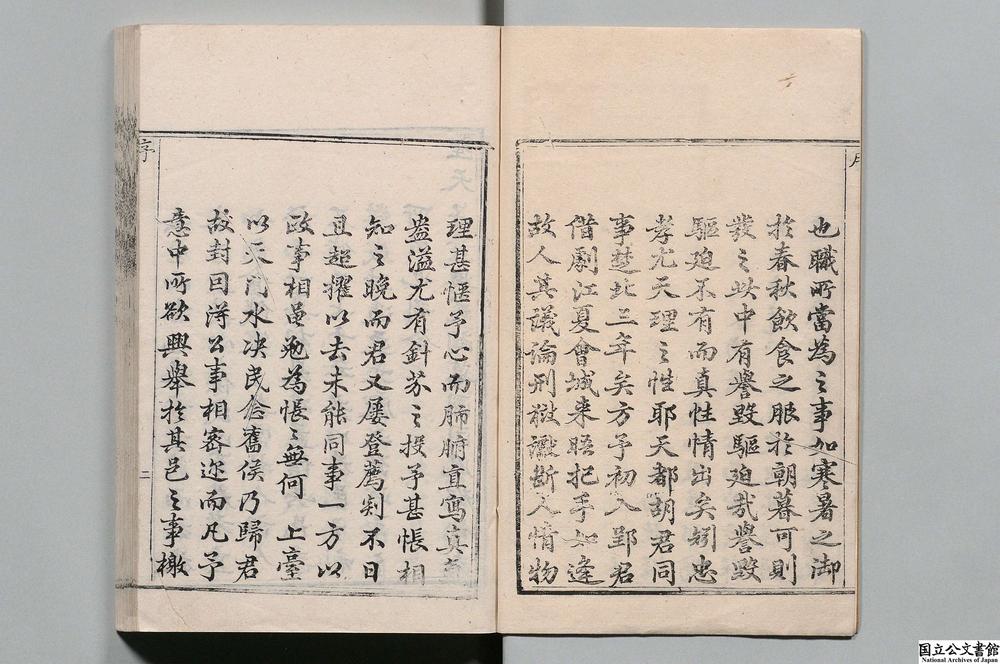 也職所當為之事如寒暑之御
於春秋飲食之服於朝暮可則
發之此中有譽毀驅迫哉譽毀
驅迫不有而真性情出矣矧忠
孝尤天理之性耶天都胡君同
事楚北三年矣方予初入郢君
借劇江夏會城来晤把手如逢
故人其議論刑獄讞斷人情物
理甚愜予心而肺腑直寫真
盎溢尤有針芥之投予甚悵相
知之晚而君又屢登薦剡不日
且超擢以去未能同事一方以
政事相黽勉為悵〻無何 上臺
以天門水决民急舊侯乃歸君
故封因得公事相密迩而凡予
意中所欲興舉於其邑之事檄
序
二
国立公文書館
National Archives of Japan